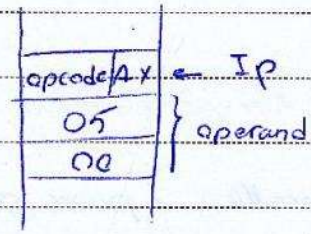 opcode/AX ← Ip
05 } operand
00